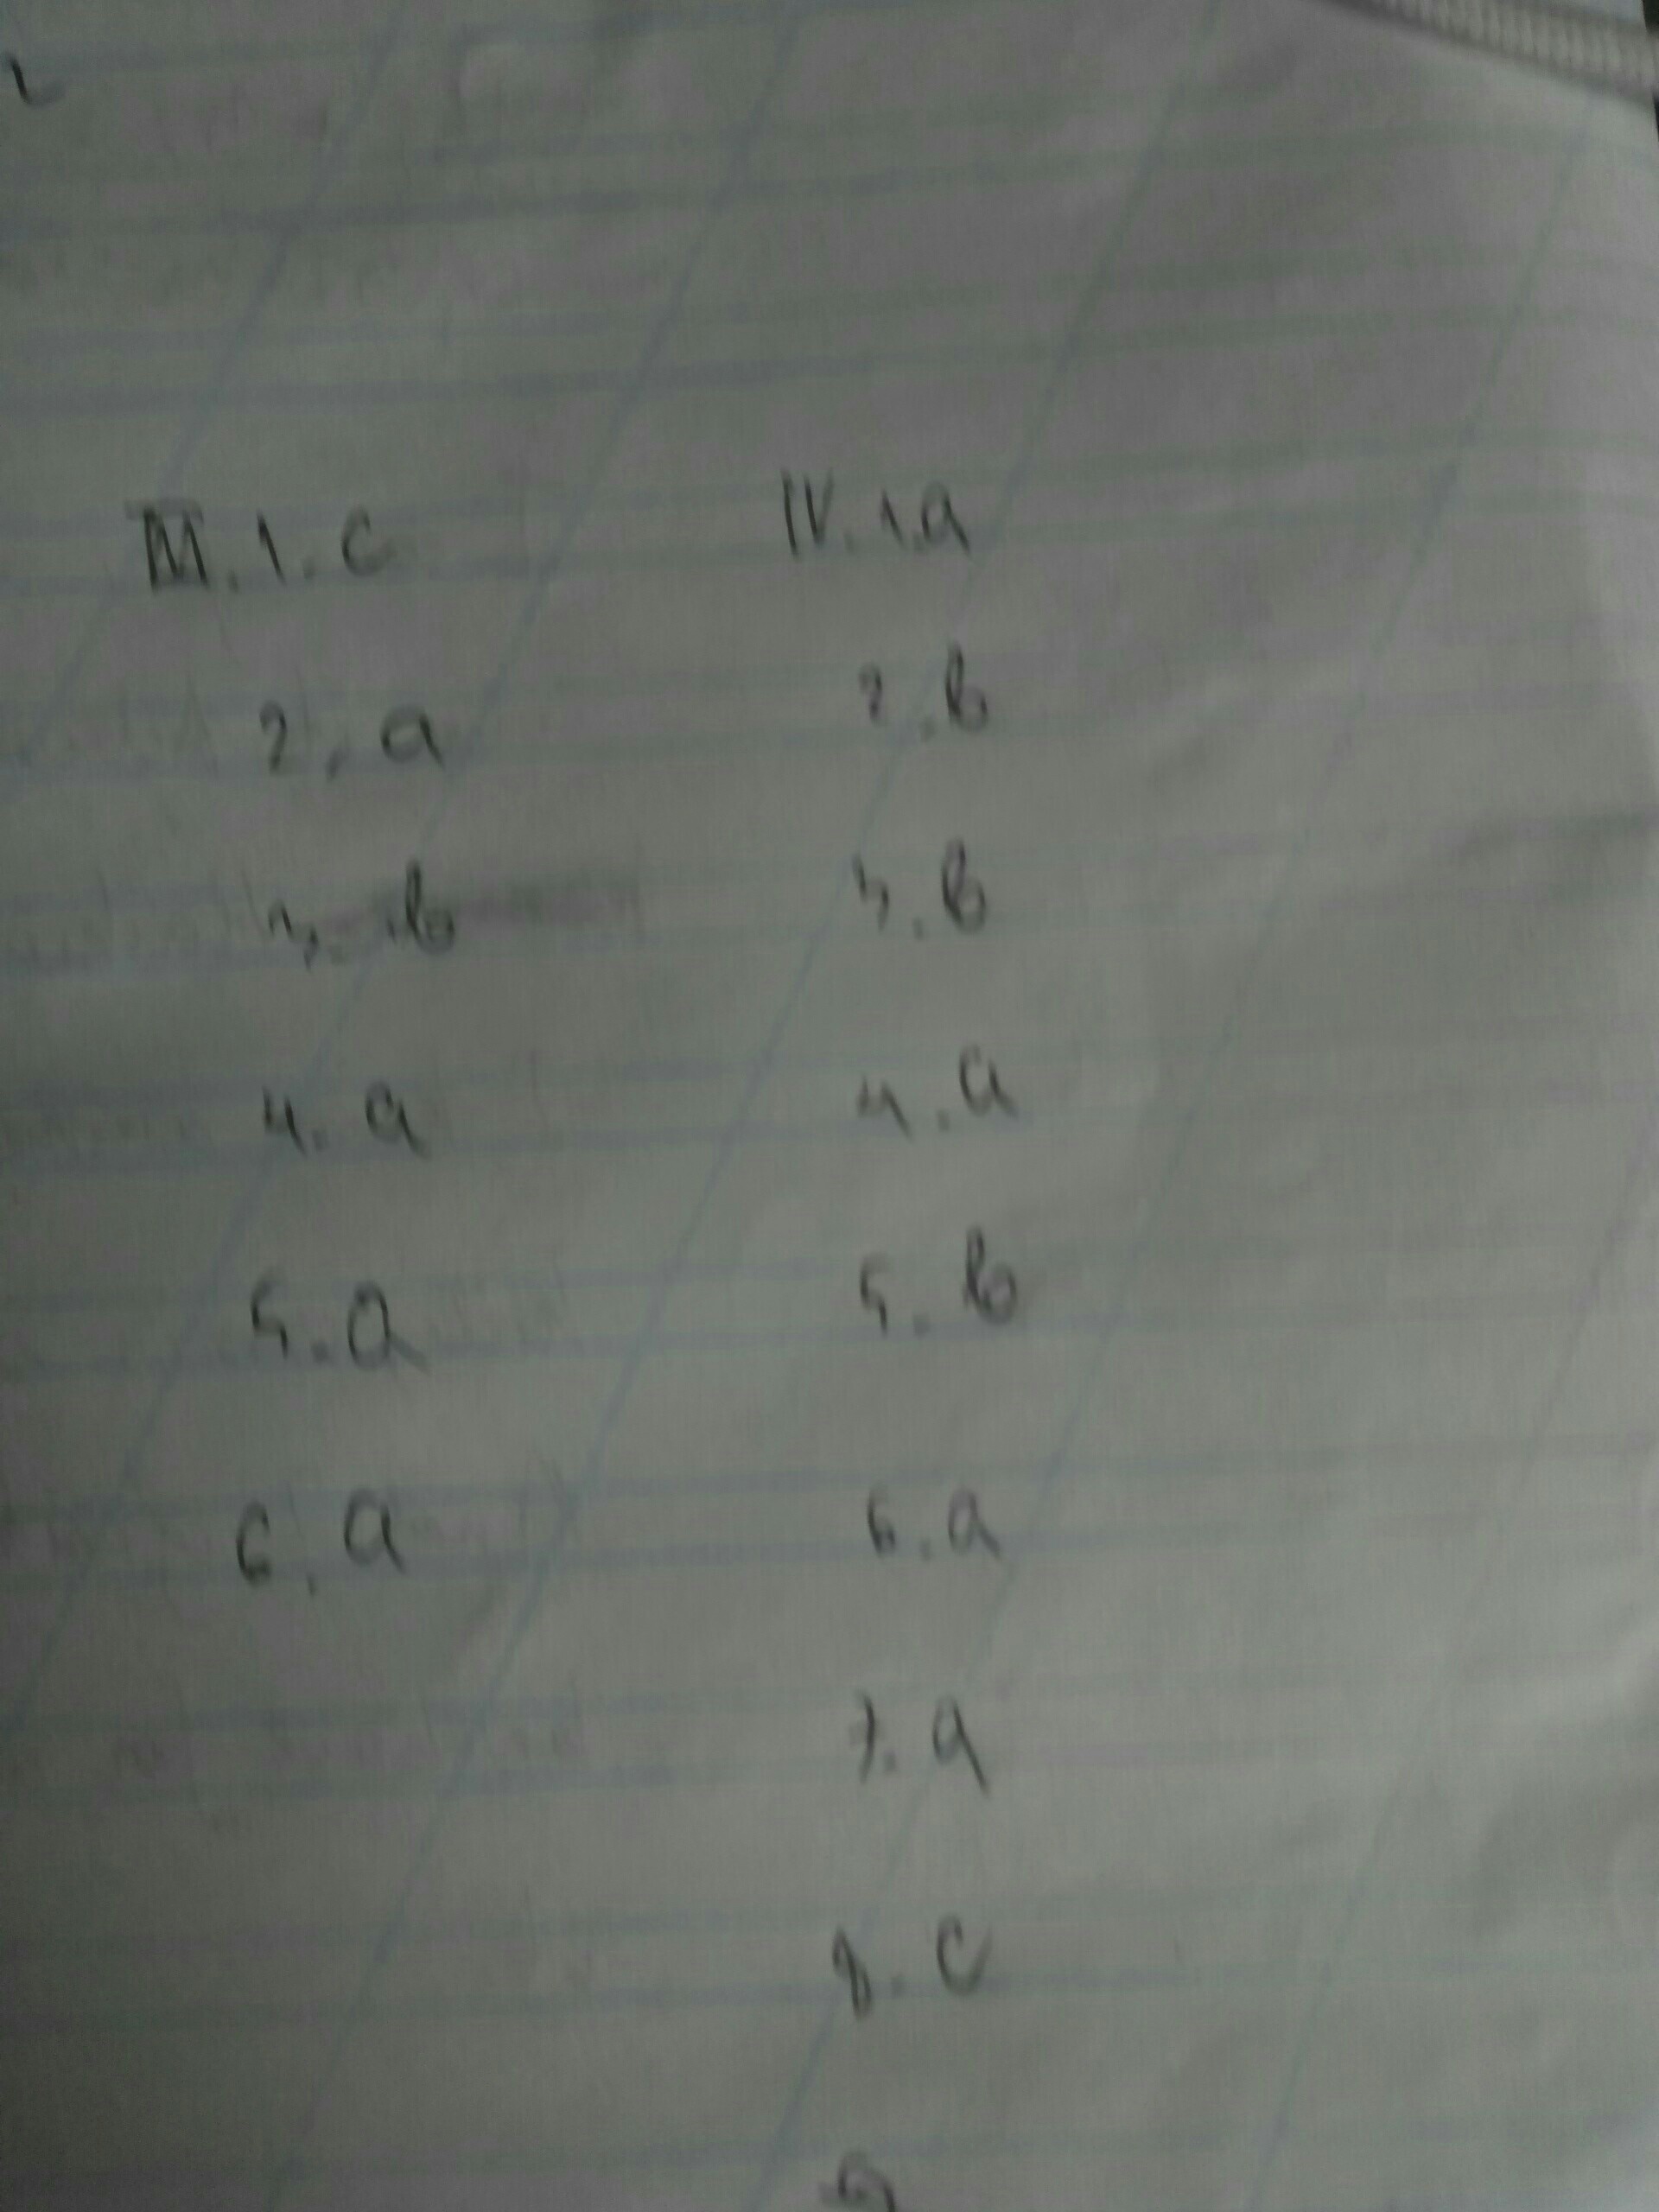 III. 1. c
2. a
3. b
4. a
5. a
6. a
IV. 1. a
2. b
3. b
4. a
5. b
6. a
7. a
8. c